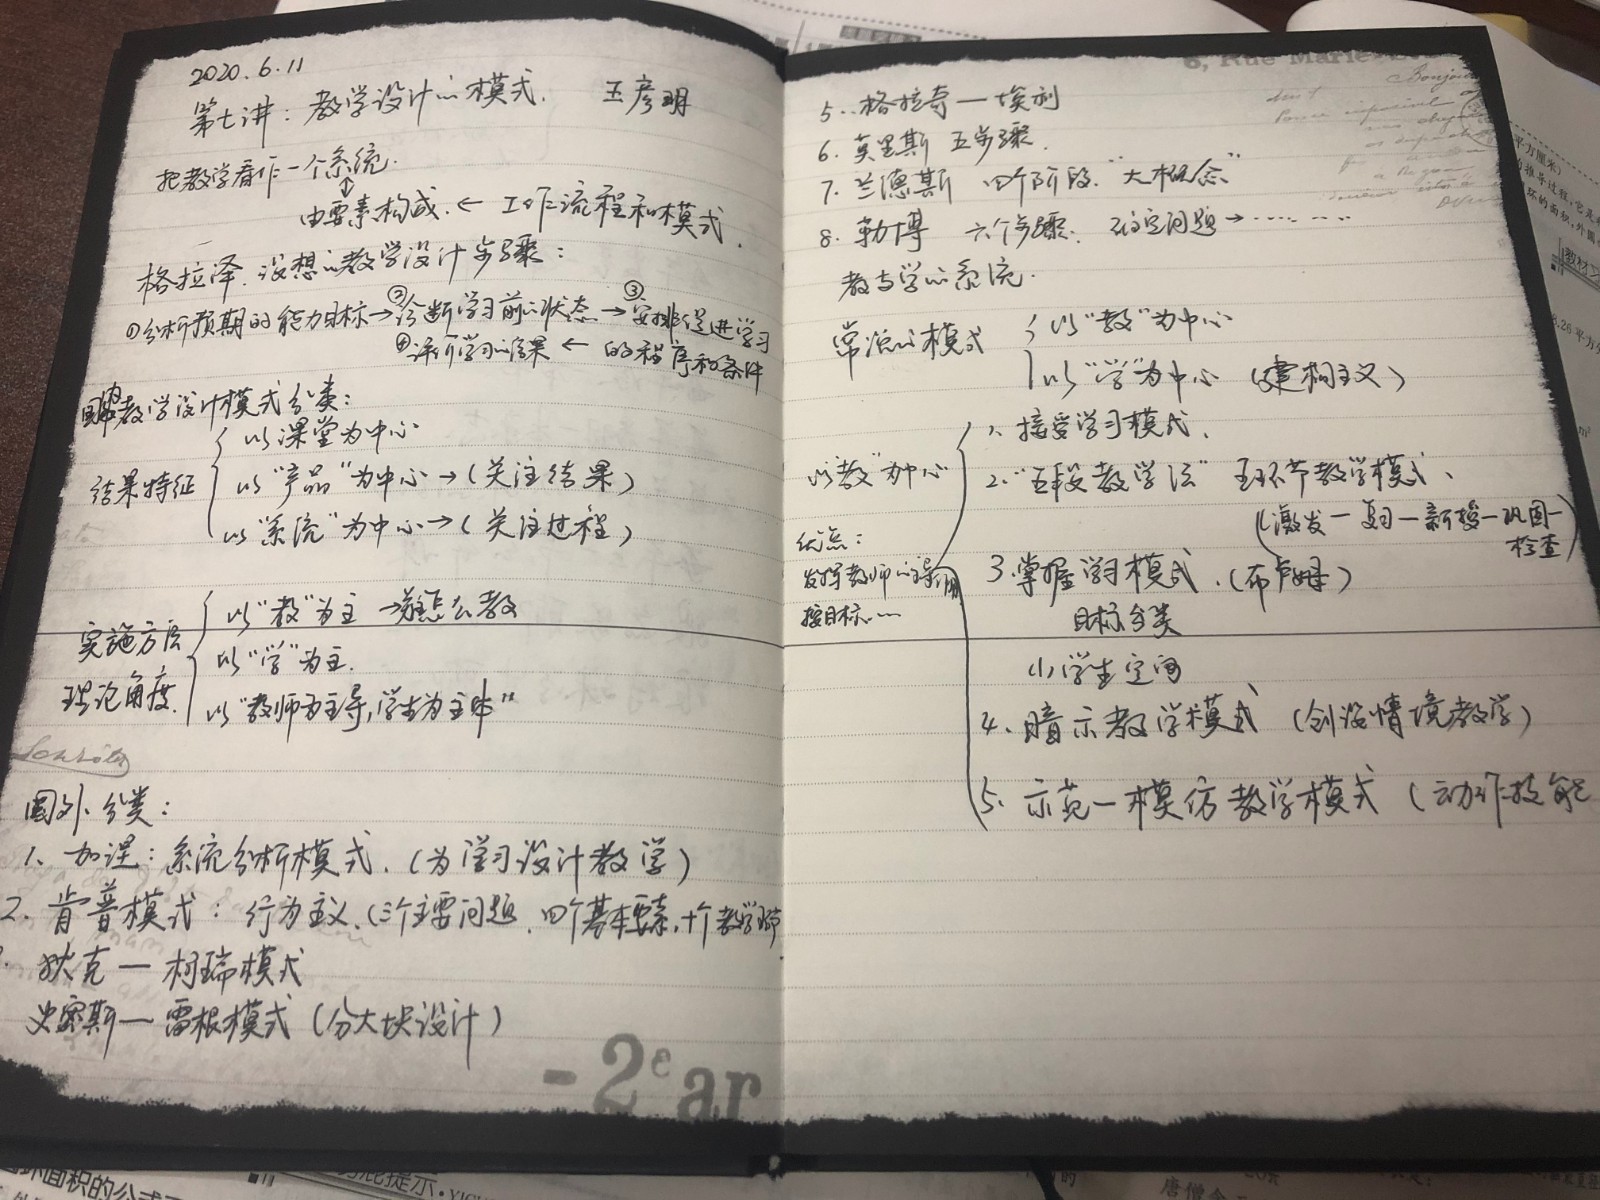 2020.6.11
第七讲：教学设计的模式. 王彦明
把教学看作一个系统.
由要素构成. ← 工作流程和模式.
格拉泽.设想的教学设计步骤：
①分析预期的能力目标→②诊断学习前的状态→③安排促进学习
④评价学习的结果 ← 的程序和条件
国内教学设计模式分类：
以课堂为中心
结果特征
以"产品"为中心→(关注结果)
以"系统"为中心→(关注过程)
以"教"为主→怎么教
实施方法
以"学"为主.
理论角度.
以"教师为主导,学生为主体"
国外分类：
1、加涅：系统分析模式.(为学习设计教学)
2.肯普模式：行为主义.(三个主要问题.四个基本要素,十个教学环节
狄克一柯瑞模式
史密斯一雷根模式(分大块设计)
-2e ar
5..格拉奇一埃利
6.莫里斯 五步骤.
7.兰德斯 四个阶段."大概念"
8.勒博 六个步骤. 确定问题→……
教与学的系统.
常见的模式
以"教"为中心
以"学"为中心 (建构主义)
1、接受学习模式.
以"教"为中心
2."五段教学法" 五环节教学模式、
(激发一复习一新授一巩固一
检查)
优点：
发挥教师的主导作用
按目标……
3.掌握学习模式.(布卢姆)
目标分类
小学生空间
4、暗示教学模式 (创设情境教学)
5.示范一模仿教学模式 (动作技能
6, Rue Marie
Bonjour
平方厘米)
的推导过程,它是
环的面积,外圆
教材
8.26平方
m²
环面积的公式
提示·
唐僧